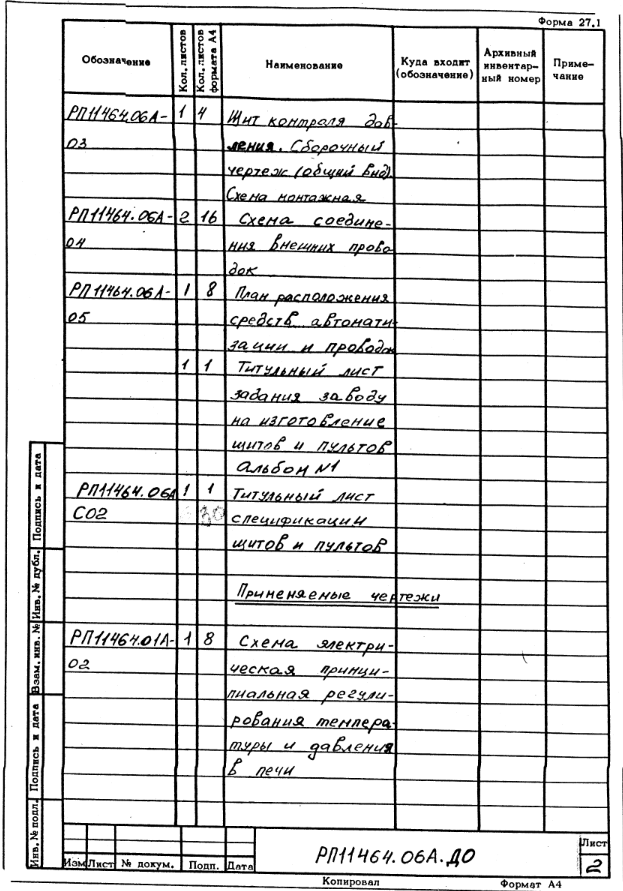 Форма 27.1
Обозначение
Кол. листов
Кол. листов формата А4
Наименование
Куда входит (обозначение)
Архивный инвентар- ный номер
Приме- чание
РП11464.06А- 1 4 Щит контроля дав-
03 ления. Сборочный
чертеж (общий вид)
Схема монтажная
РП11464.06А- 2 16 Схема соедине-
04 ния внешних прово-
док
РП11464.06А- 1 8 План расположения
05 средств автомати-
зации и проводок
1 1 Титульный лист
задания заводу
на изготовление
щитов и пультов
Альбом №1
РП11464.06А 1 1 Титульный лист
СО2 30 спецификации
щитов и пультов
Применяемые чертежи
РП11464.01А- 1 8 Схема электри-
02 ческая принци-
пиальная регули-
рования темпера-
туры и давления
в печи
Инв. № подл. Подпись и дата Взам. инв. № Инв. № дубл. Подпись и дата
Изм Лист № докум. Подп. Дата
РП11464.06А.ДО
Лист
2
Копировал
Формат А4